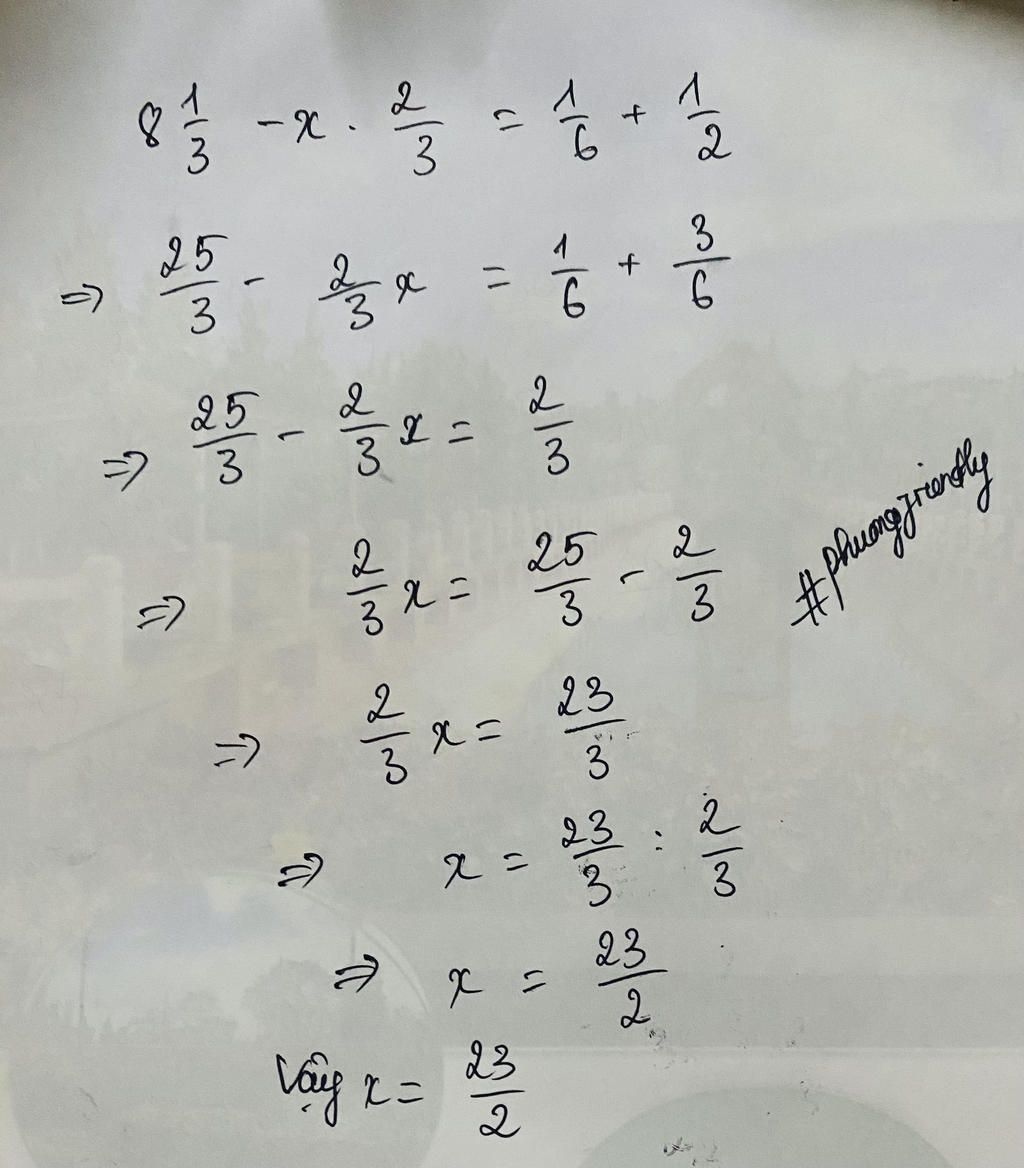 8 1/3 - x . 2/3 = 1/6 + 1/2
=> 25/3 - 2/3 x = 1/6 + 3/6
=> 25/3 - 2/3 x = 2/3
=> 2/3 x = 25/3 - 2/3
#phuongfriendly
=> 2/3 x = 23/3
=> x = 23/3 : 2/3
=> x = 23/2
Vậy x = 23/2